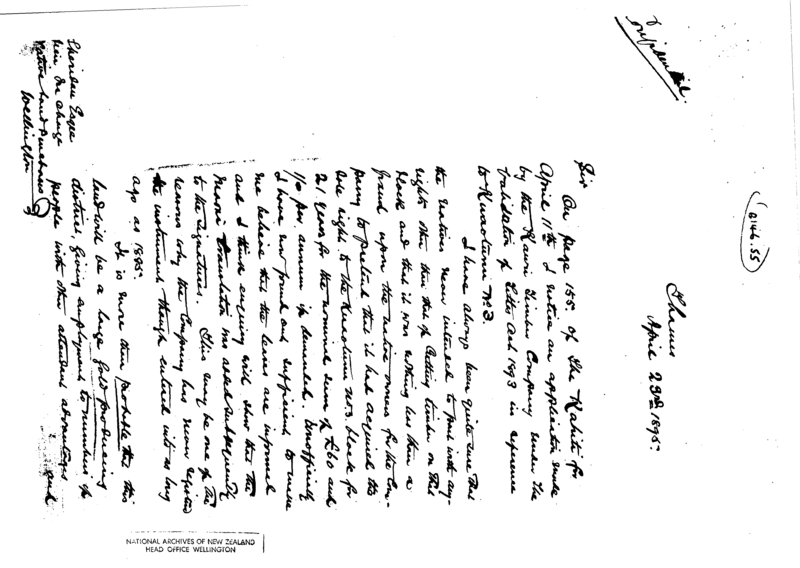 Confidential.
2146.55
Thames
April 23rd 1895.
Sir
On page 155 of The Kahiti for
April 11th I notice an application made
by the Kauri Timber Company under the
Validation of Titles Act 1893 in reference
to Kuaotunu No 3.
I have always been quite sure that
the natives never intended to part with any
rights other than that of Cutting timber on this
block and that it was nothing less than a
fraud upon the native owners for the Com-
pany to pretend that it had acquired the
sole right to the Kuaotunu No 3 block for
21 years for the nominal sum of £60 and
1/0 per annum if demanded. Unofficially
I have now found out sufficient to make
me believe that the leases are informal
and I think enquiry will show that the
Maori translation was added subsequently
to the signatures. This may be one of the
reasons why the Company has never registered
the instrument though entered into as long
ago as 1885.
It is more than probable that this
land will be a large gold producing
district, giving employment to numbers of
people with other attendant advantages
and
Sheridan Esqre
in charge
Native Land Purchases
Wellington
NATIONAL ARCHIVES OF NEW ZEALAND
HEAD OFFICE WELLINGTON